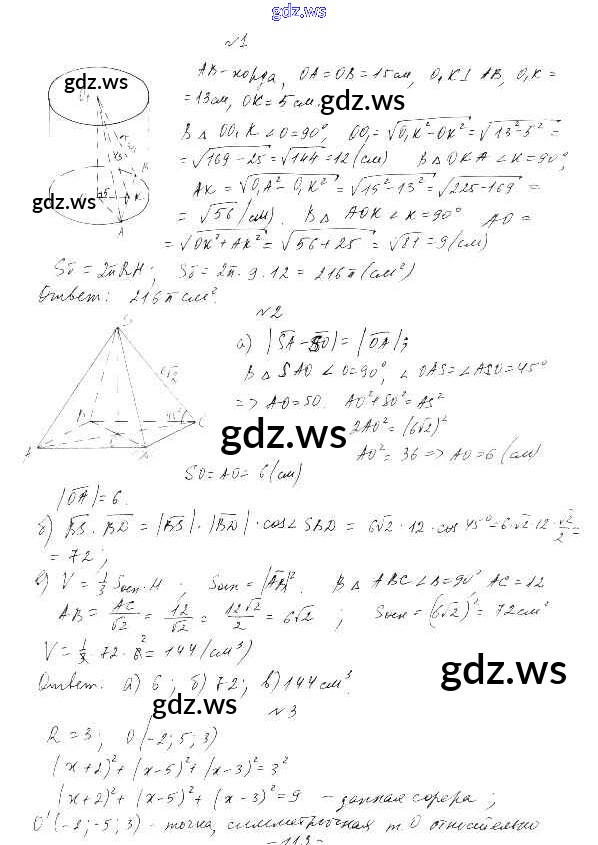 gdz.ws
№1
gdz.ws
AB - хорда, OA = OB = 15 см, O₁K ⊥ AB, O₁K =
= 13 см, OK = 5 см.
gdz.ws
В △ OO₁K ∠O = 90°, OO₁ = √(O₁K² - OK²) = √(13² - 5²) =
= √(169 - 25) = √144 = 12 (см) В △ OKA ∠K = 90°,
gdz.ws
AK = √(O₁A² - O₁K²) = √(15² - 13²) = √(225 - 169) =
= √56 (см). В △ AOK ∠K = 90° AO =
= √(OK² + AK²) = √(56 + 25) = √81 = 9 (см)
Sб = 2πRH; Sб = 2π · 9 · 12 = 216π (см²)
Ответ: 216π см².
№2
а) |SA - SO| = |OA|;
В △ SAO ∠O = 90°, ∠OAS = ∠ASO = 45°
=> AO = SO. AO² + SO² = AS²
gdz.ws
2AO² = (6√2)²
AO² = 36 => AO = 6 (см)
SO = AO = 6 (см)
|OA| = 6.
б) BS · BD = |BS| · |BD| · cos∠SBD = 6√2 · 12 · cos 45° = 6√2 · 12 · √2/2 =
= 72;
в) V = 1/3 Sосн · H; Sосн = |AB|². В △ ABC ∠B = 90° AC = 12
AB = AC/√2 = 12/√2 = 12√2/2 = 6√2; Sосн = (6√2)² = 72 см²
gdz.ws
V = 1/3 · 72 · 6 = 144 (см³)
gdz.ws
Ответ: а) 6; б) 72; в) 144 см³.
gdz.ws
№3
R = 3; O(-2; 5; 3)
(x+2)² + (x-5)² + (x-3)² = 3²
(x+2)² + (x-5)² + (x-3)² = 9 - данная сфера;
O'(-2; -5; 3) - точка, симметричная т. O относительно
- 113 -
gdz.ws